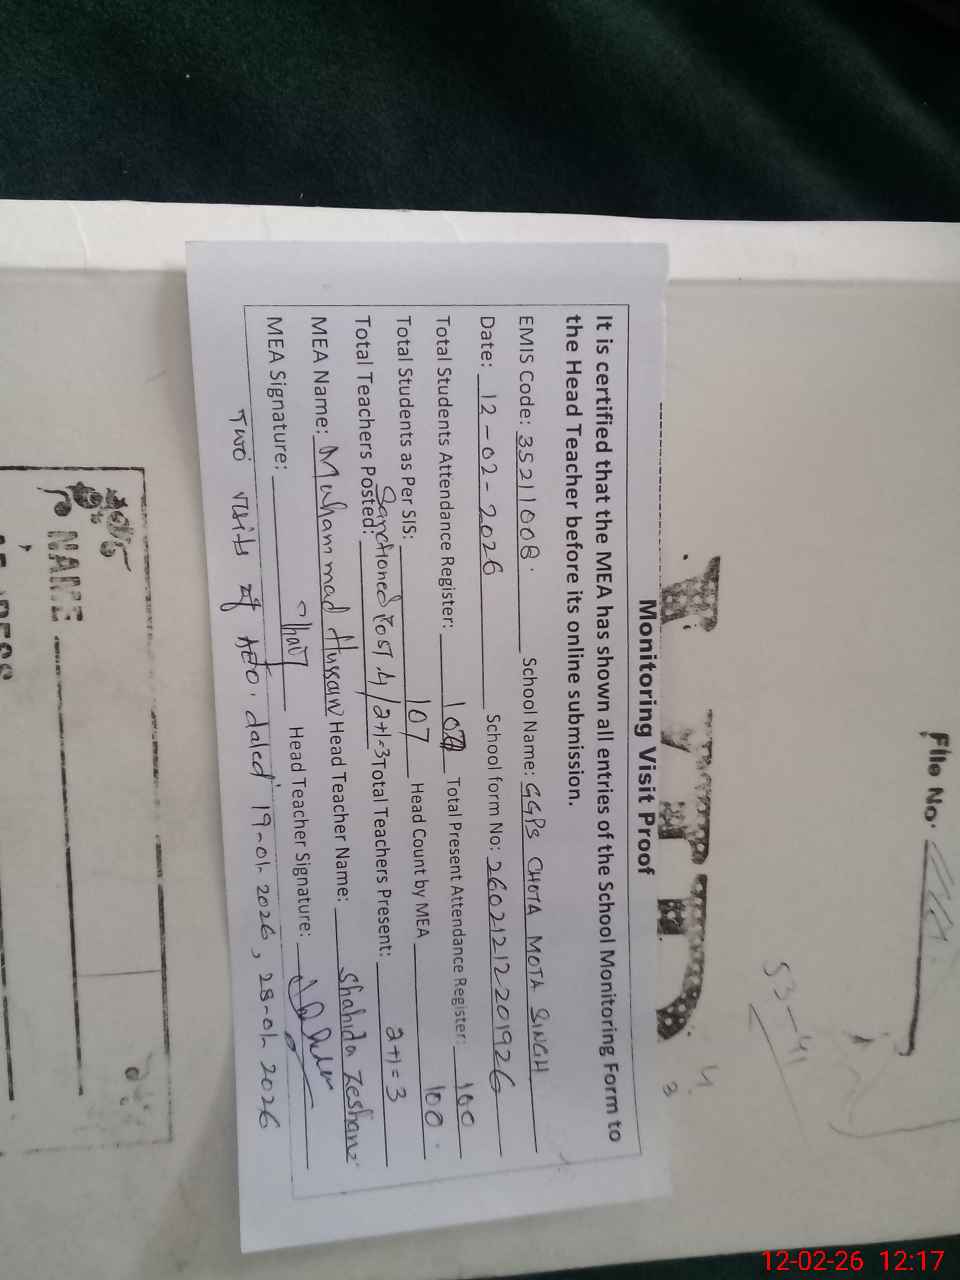 File No.
53-41
4
3
Monitoring Visit Proof
It is certified that the MEA has shown all entries of the School Monitoring Form to
the Head Teacher before its online submission.
EMIS Code: 35211008. School Name: GGPS CHOTA MOTA SINGH
Date: 12-02-2026 School form No: 26021212201926
Total Students Attendance Register: 107 Total Present Attendance Register: 100
Total Students as Per SIS: 107 Head Count by MEA 100.
Sanctioned Post 4/2+1=3
Total Teachers Posted: Total Teachers Present: 2+1=3
MEA Name: Muhammad Hussain Head Teacher Name: Shahida Zeshan
MEA Signature: Head Teacher Signature:
Two visits of AEO. dated 19-01-2026, 28-01-2026
NAME
12-02-26 12:17